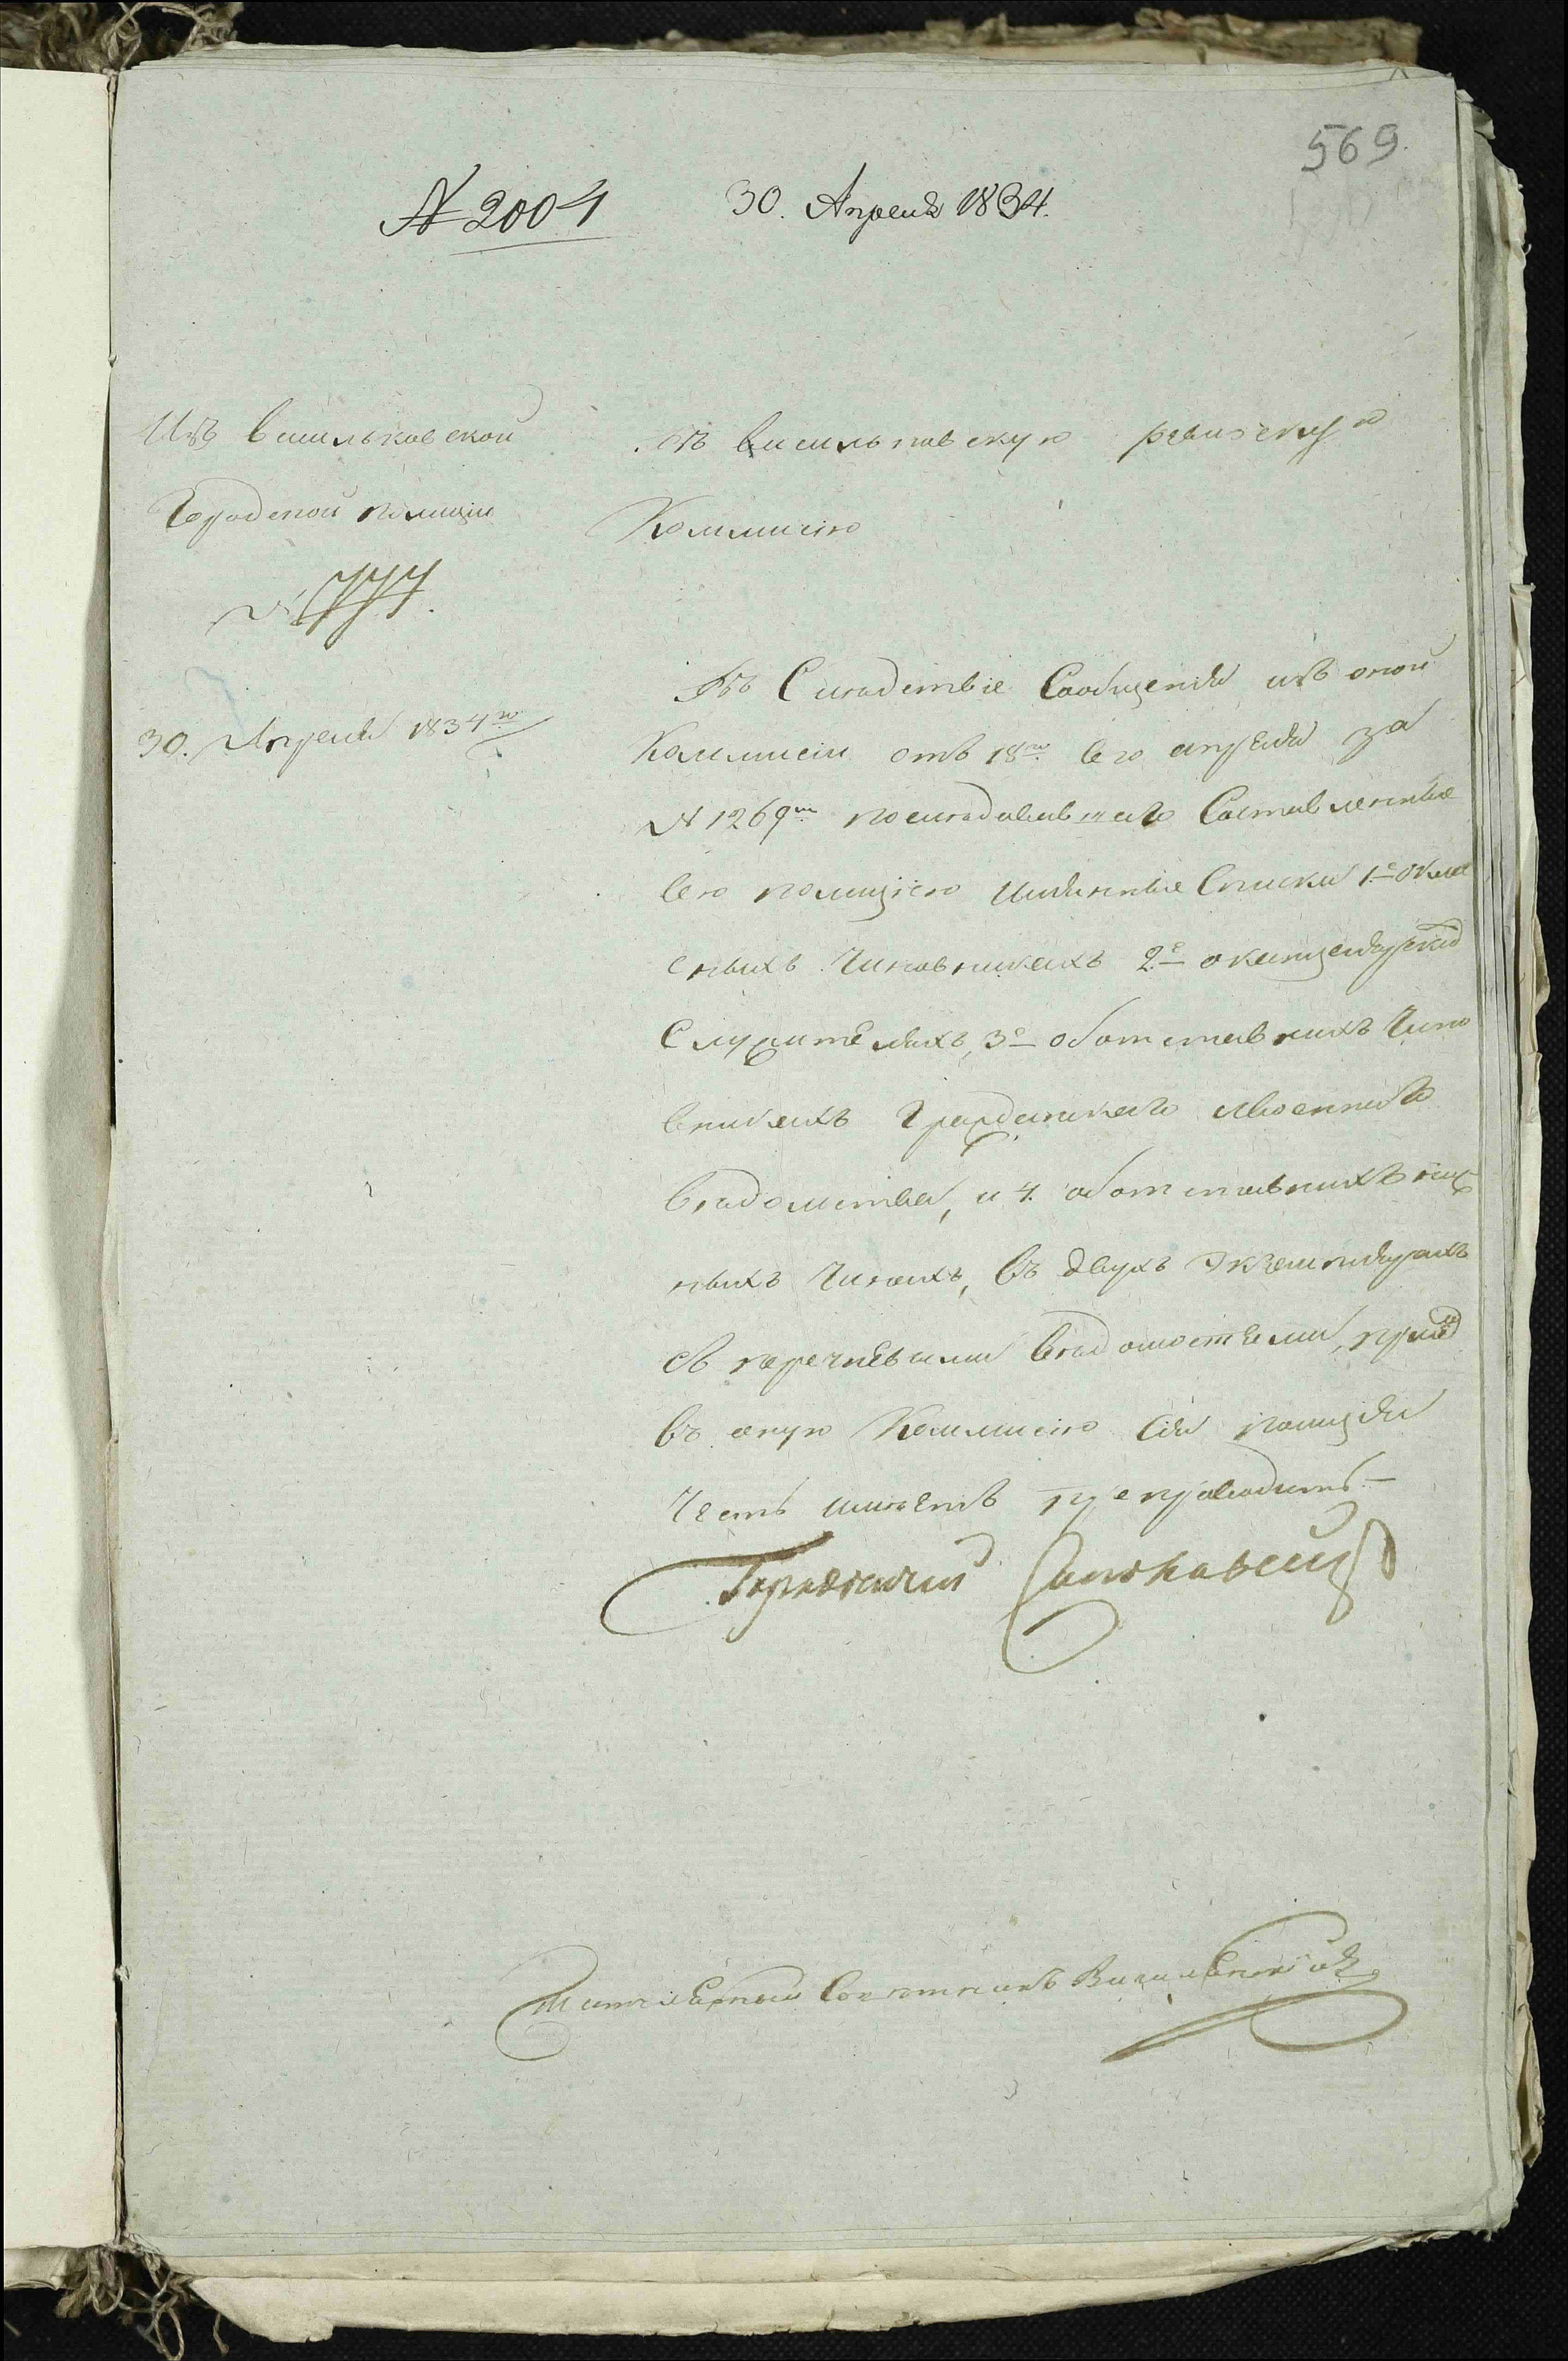 569.
№ 2004 30. Апреля 1834.
Изъ васильковской
Городской полиции
№ 777.
30. Апреля 1834го
Въ васильковскую ревизскую
Коммисію
Въ Следствіе Сообщенія изъ оной
Коммисіи отъ 18го сего апреля за
№ 1269м последовавшаго Составленные
сею полициею имянные Списки 1е о клас
сныхъ Чиновникахъ 2е о канцелярских
Служителяхъ, 3е оботставныхъ Чино
вникахъ Гражданскаго ивоеннаго
ведомства, и 4. оботставныхъ ниж
ныхъ Чинахъ, въ двухъ Экземплярахъ
съ перечневыми ведомостями,
въ оную Коммисію Сія полиція
Честь имеетъ препроводить
Городничий
Титулярный Советникъ